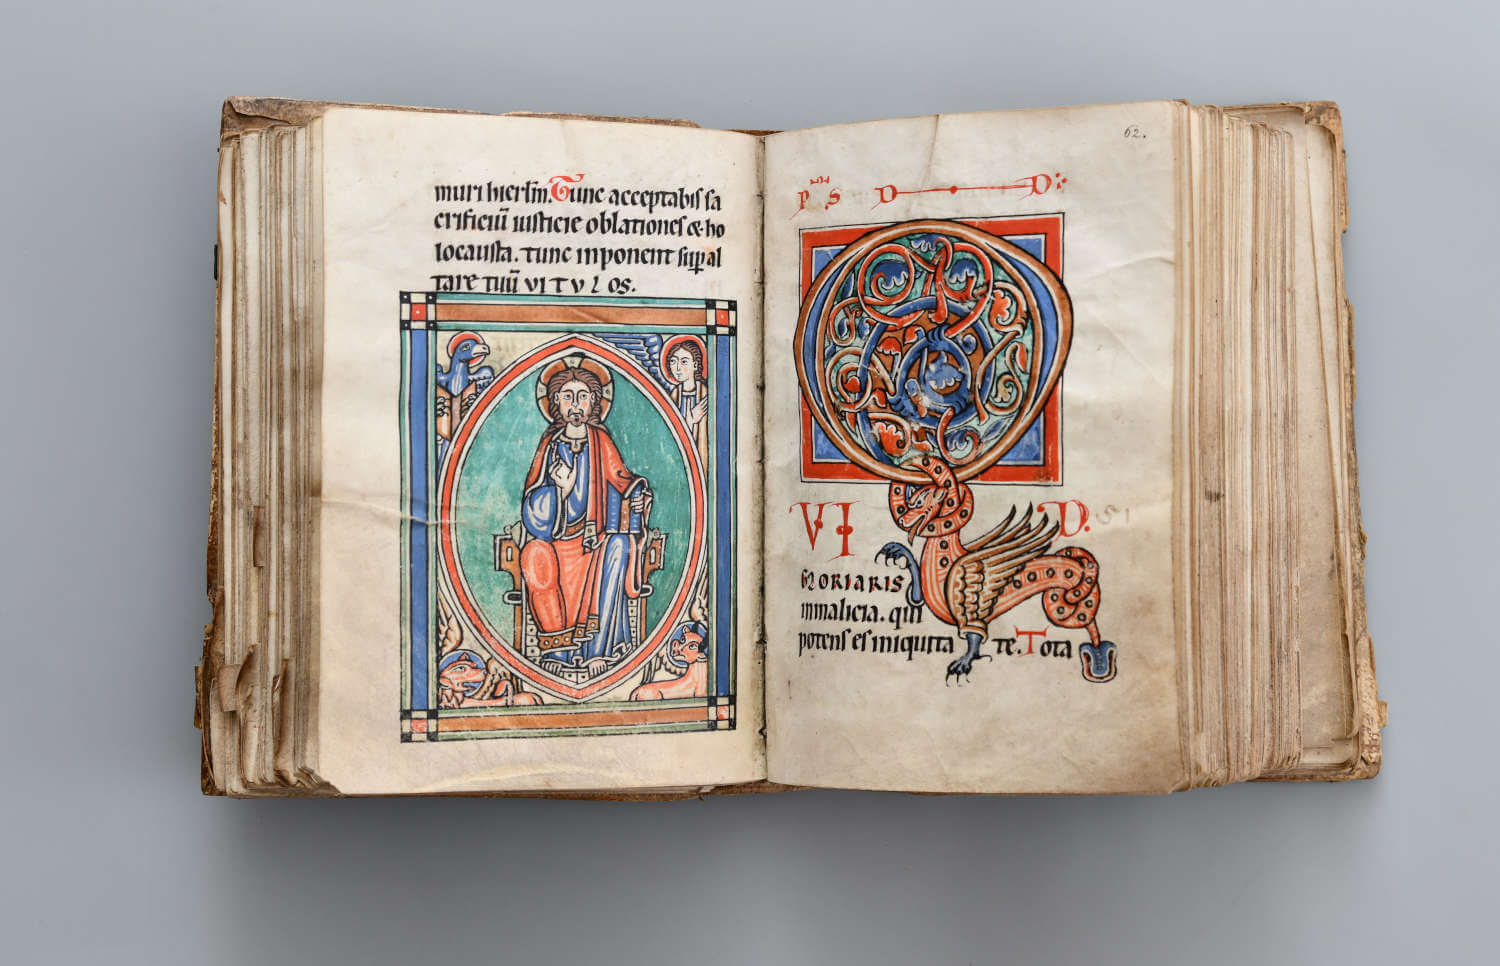 muri hierſm̄. Tunc acceptabiſ ſa
crificiū iuſticie oblationeſ & ho
locauſta. tunc inponent ſup al
tare tuū VITVLOS.
62.
PS D D
QVI D.
GLORIARIS
inmalicia. qui
potenſ eſ iniquita te. Tota